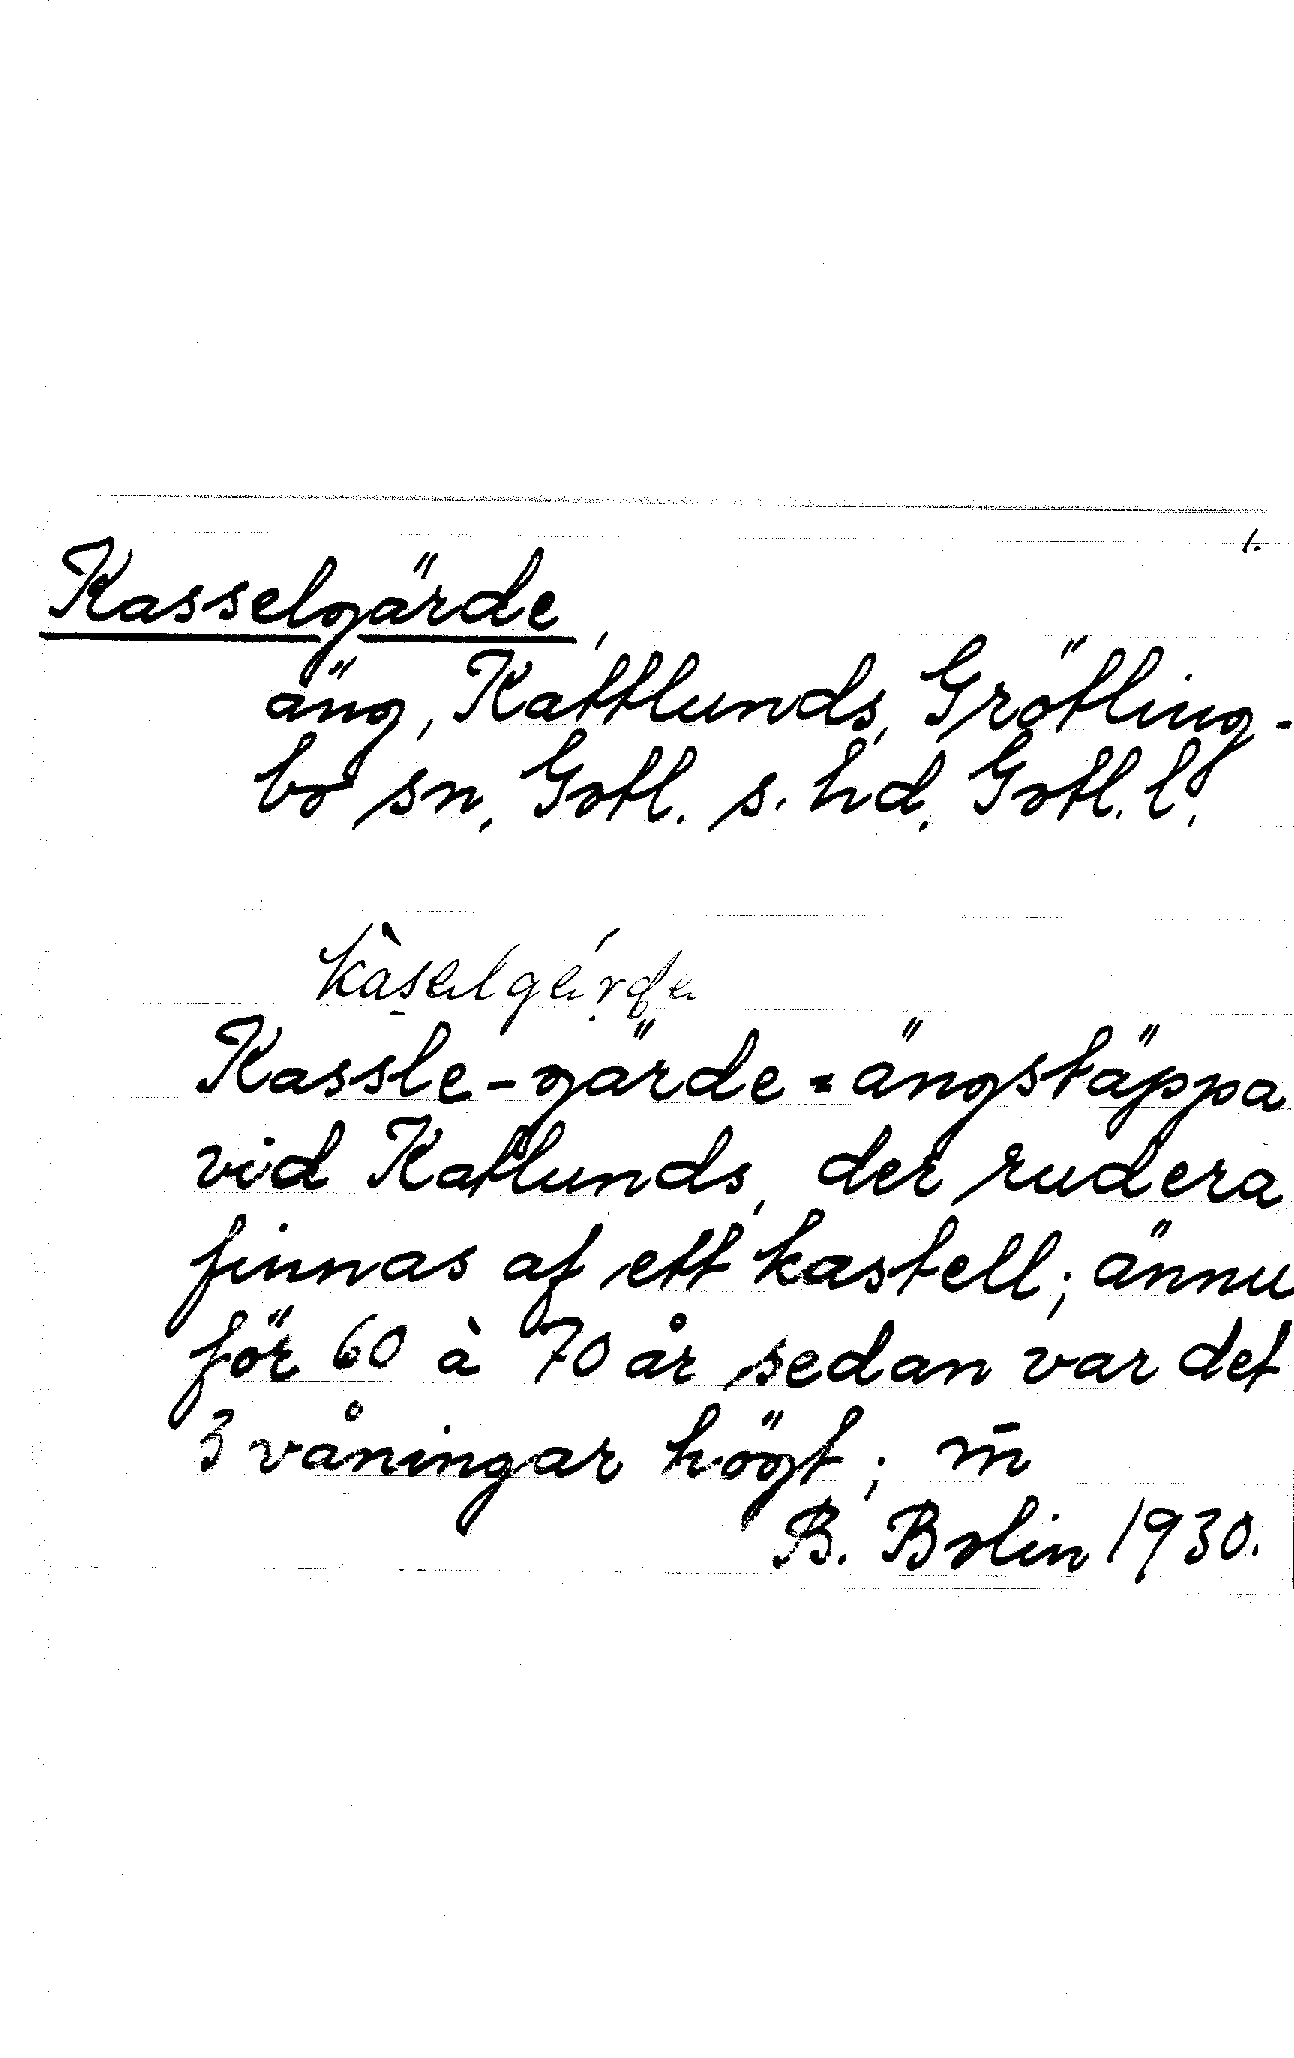 1.
Kasselgärde,
äng, Kattlunds, Grötling-
bo sn, Gotl. s. hd, Gotl. l.
Kassle-gärde = ängstäppa
vid Katlunds, der rudera
finnas af ett kastell; ännu
för 60 à 70 år sedan var det
3 våningar högt; m̄
B. Bolin 1930.